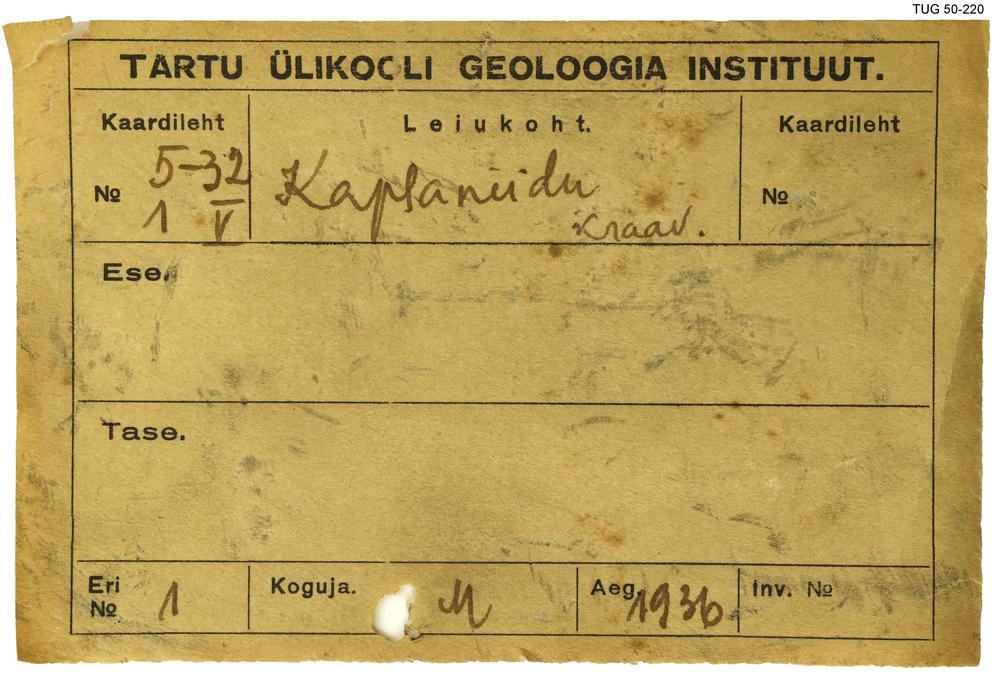 TUG 50-220
TARTU ÜLIKOOLI GEOLOOGIA INSTITUUT.
Kaardileht
№ 5-32
1 V
Leiukoht.
Kaplaniidu
Kraav.
Kaardileht
№
Ese.
Tase.
Eri
№ 1
Koguja. M
Aeg. 1936
Inv. №